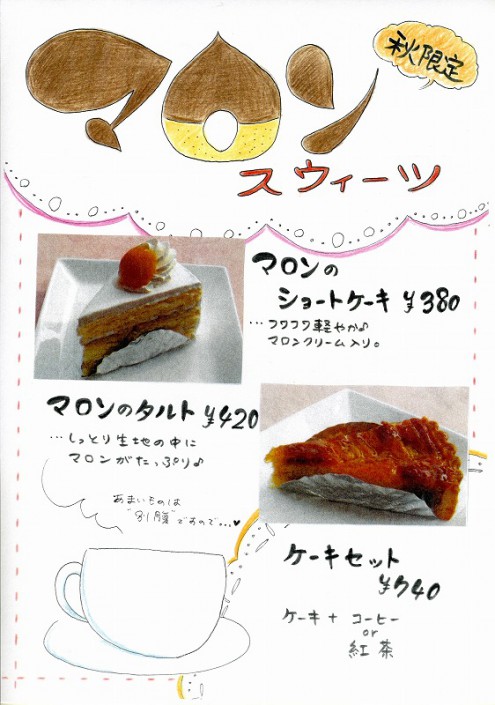 秋限定
マロン
スウィーツ
マロンの
ショートケーキ ¥380
…フワフワ軽やか♪
マロンクリーム入り。
マロンのタルト ¥420
…しっとり生地の中に
マロンがたっぷり♪
あまいものは
"別腹"ですので…♥
ケーキセット
¥740
ケーキ + コーヒー
or
紅茶